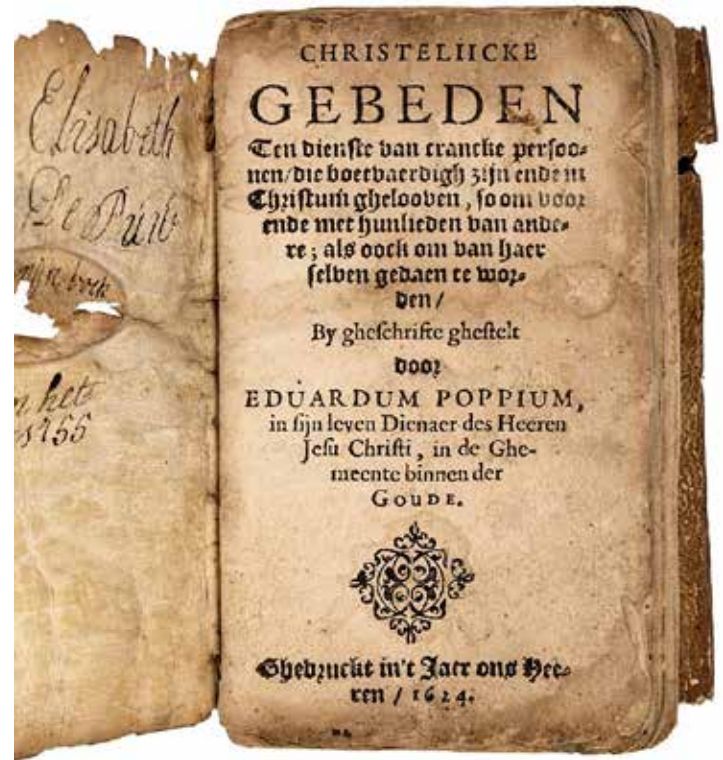 Elisabeth
De
mijn boek
het
1755
CHRISTELIICKE
GEBEDEN
Ten dienste van crancke persoo-
nen/die boetvaerdigh zijn ende in
Christum ghelooven, so om voor
ende met hunlieden van ande-
re; als oock om van haer
selven gedaen te wor-
den/
By gheschrifte ghestelt
door
EDUARDUM POPPIUM,
in sijn leven Dienaer des Heeren
Jesu Christi, in de Ghe-
meente binnen der
GOUDE.
Ghedruckt in't Jaer ons Hee-
ren / 1624.